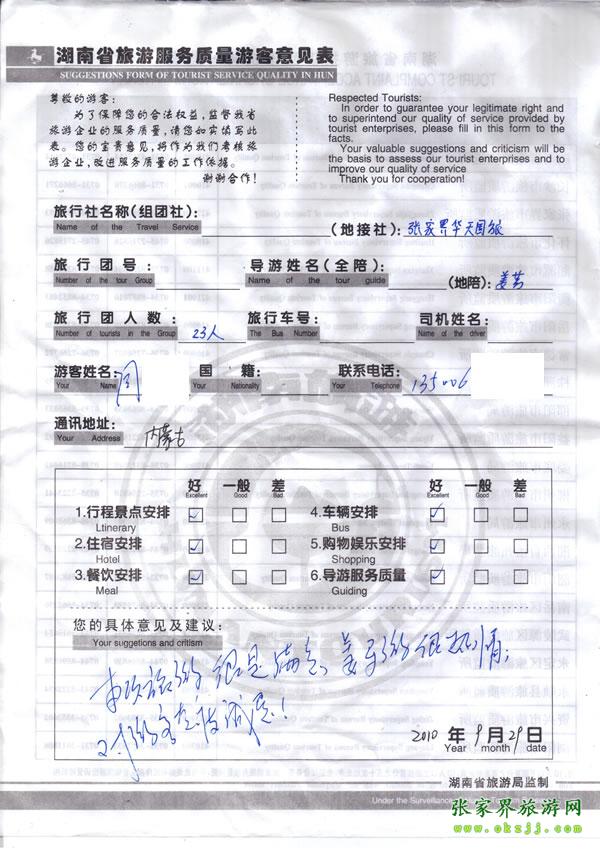 湖南省旅游服务质量游客意见表
SUGGESTIONS FORM OF TOURIST SERVICE QUALITY IN HUN
尊敬的游客:
为了保障您的合法权益,监督我省
旅游企业的服务质量,请您如实填写此
表。您的宝贵意见,将作为我们考核旅
游企业,改进服务质量的工作依据。
谢谢合作!
Respected Tourists:
In order to guarantee your legitimate right and
to superintend our quality of service provided by
tourist enterprises, please fill in this form to the
facts.
Your valuable suggestions and criticism will
be the basis to assess our tourist enterprises and to
improve our quality of service
Thank you for cooperation!
旅行社名称(组团社): (地接社): 张家界华天国旅
Name of the Travel Service
旅行团号: 导游姓名(全陪): (地陪): 姜芳
Number of the tour Group Name of the tour guide
旅行团人数: 23人 旅行车号: 司机姓名:
Number of tourists in the Group The Bus Number Name of the driver
游客姓名: 周 国籍: 联系电话: 135006
Your Name Your Nationality Your Telephone
通讯地址: 内蒙古
Your Address
好 一般 差 好 一般 差
Excellent Good Bad Excellent Good Bad
1.行程景点安排 4.车辆安排
Ltinerary Bus
2.住宿安排 5.购物娱乐安排
Hotel Shopping
3.餐饮安排 6.导游服务质量
Meal Guiding
您的具体意见及建议:
Your suggetions and critism
本次旅游很是满意,姜导游很热情;
对游客态度诚恳!
2010 年 9 月 29 日
Year month date
湖南省旅游局监制
Under the Surveillance
张家界旅游网
www.okzjj.com